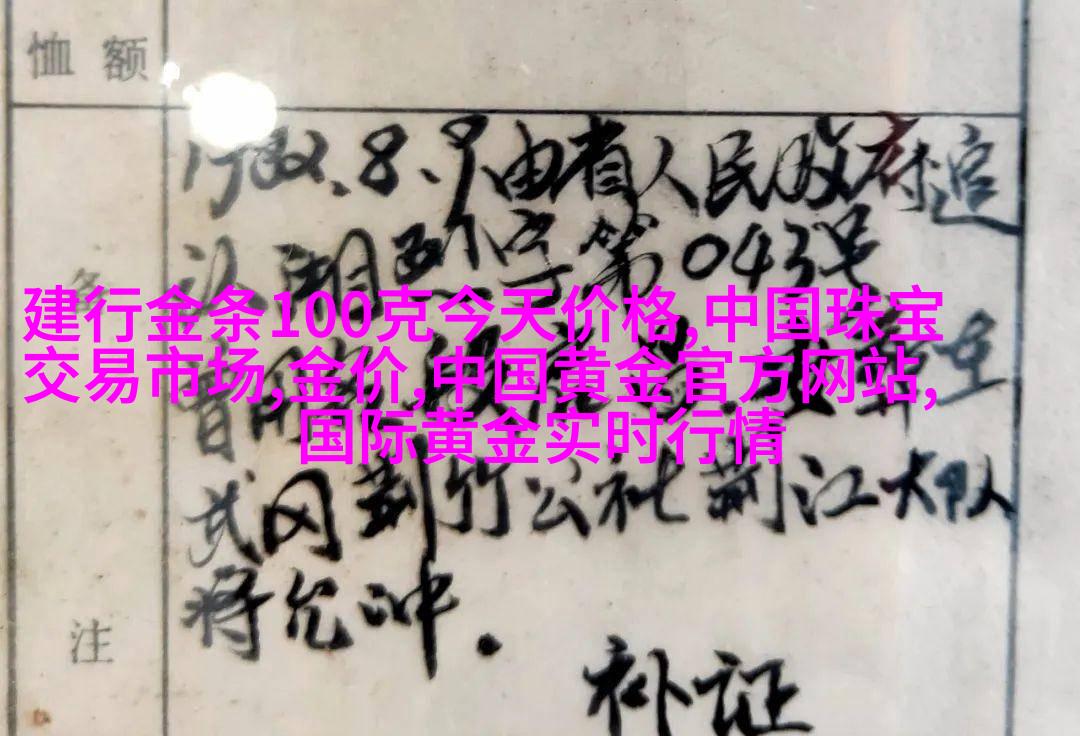 恤额
1982.8.9由省人民政府追
认湘烈字第043号
建行金条100克今天价格,中国珠宝
交易市场,金价,中国黄金官方网站,
国际黄金实时行情
武冈荆竹公社荆江大队
将允冲.
注
补证